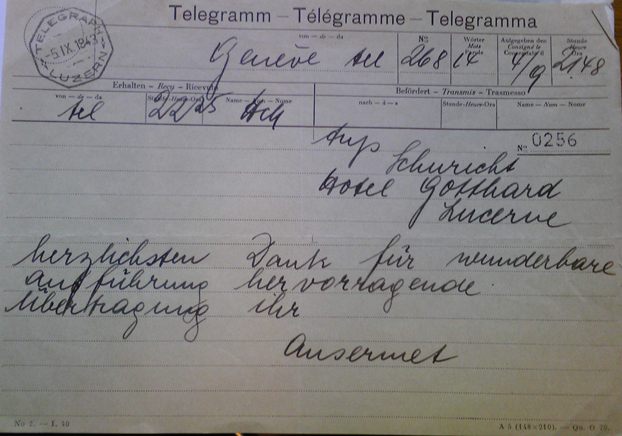 Telegramm – Télégramme – Telegramma
TELEGRAPH
-5.IX.1943
LUZERN
von – de – da
Genève tel
Nº
268
Wörter
Mots
Parole
14
Aufgegeben den
Consigné le
Consegnato il
4/9
Stunde
Heure
Ora
2148
Erhalten – Reçu – Ricevuto
Befördert – Transmis – Trasmesso
von – de – da
tel
Stunde-Heure-Ora
2225
Name – Nom – Nome
nach – à – a
Stunde-Heure-Ora
Name – Nom – Nome
Nº 0256
Schuricht
Hotel Gotthard
Lucerne
herzlichsten Dank für wunderbare
aufführung hervorragende
Übertragung ihr
Ansermet
A 5 (148×210). – Qu. O 70.